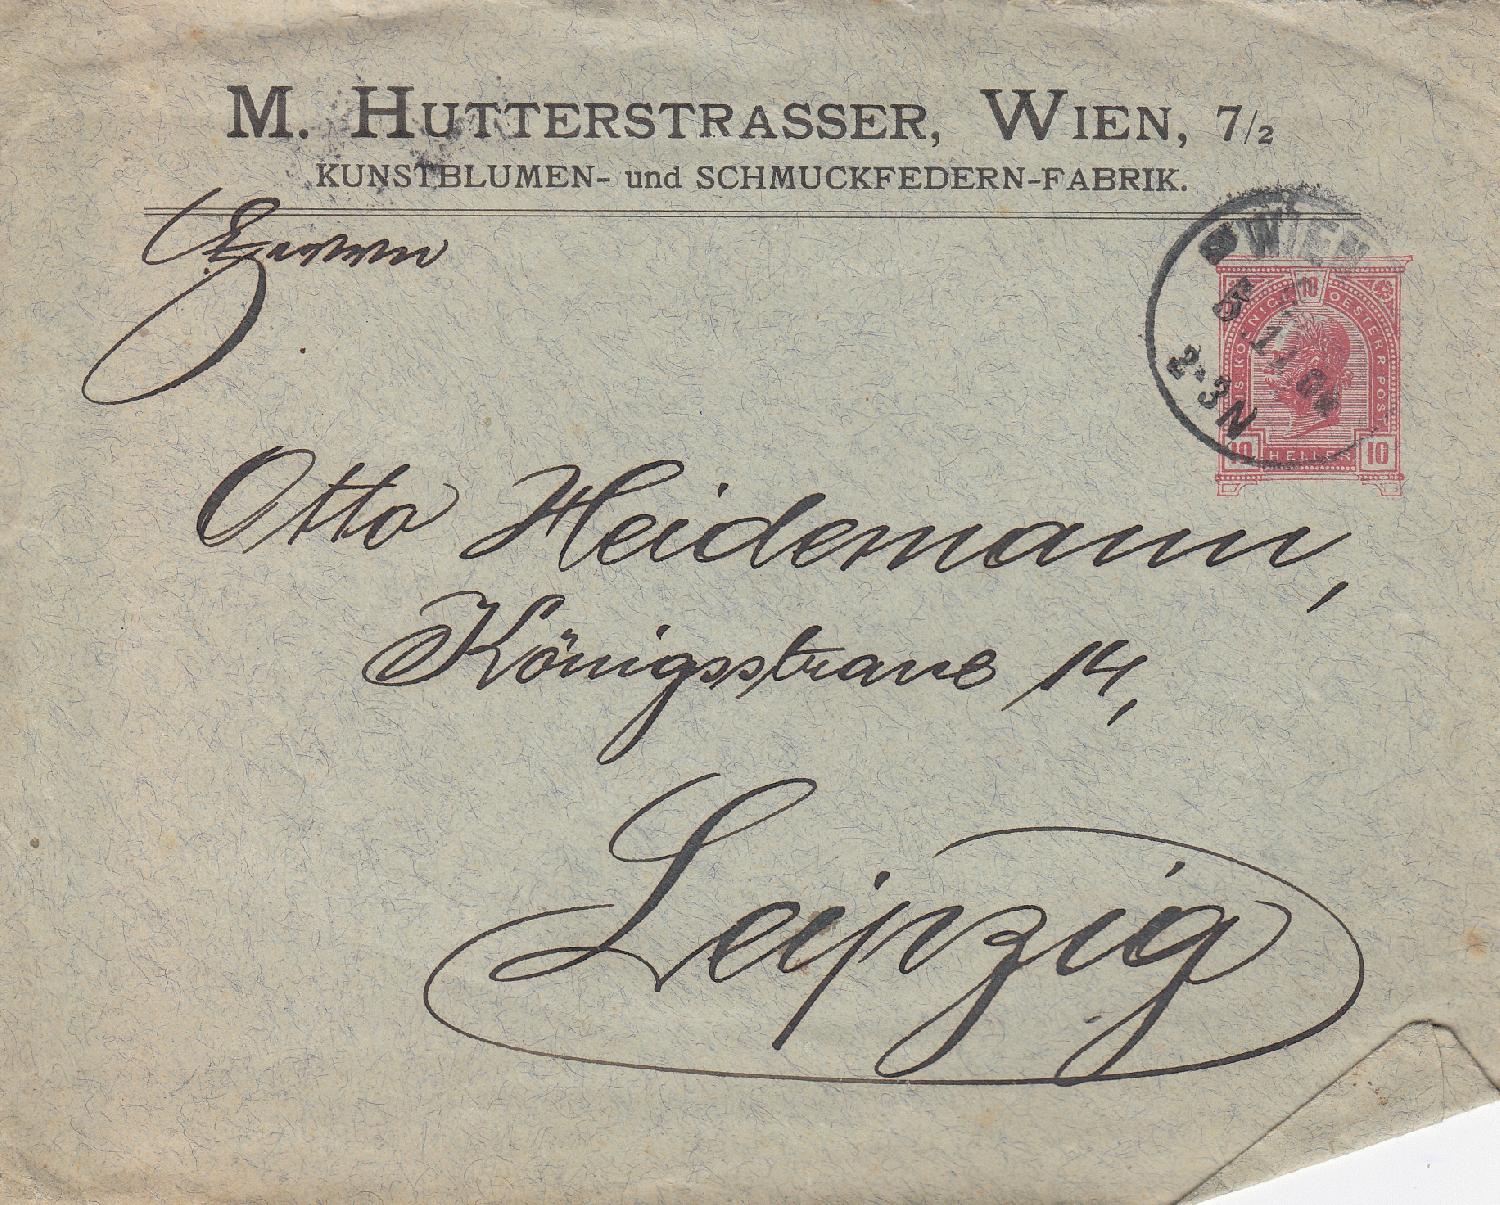 M. HUTTERSTRASSER, WIEN, 7/2
KUNSTBLUMEN- und SCHMUCKFEDERN-FABRIK.
Herrn
WIEN
2-3N
10
S. KOENIGL. OESTERR. POST
10 HELLER 10
Otto Heidemann,
Königsstrasse 14,
Leipzig